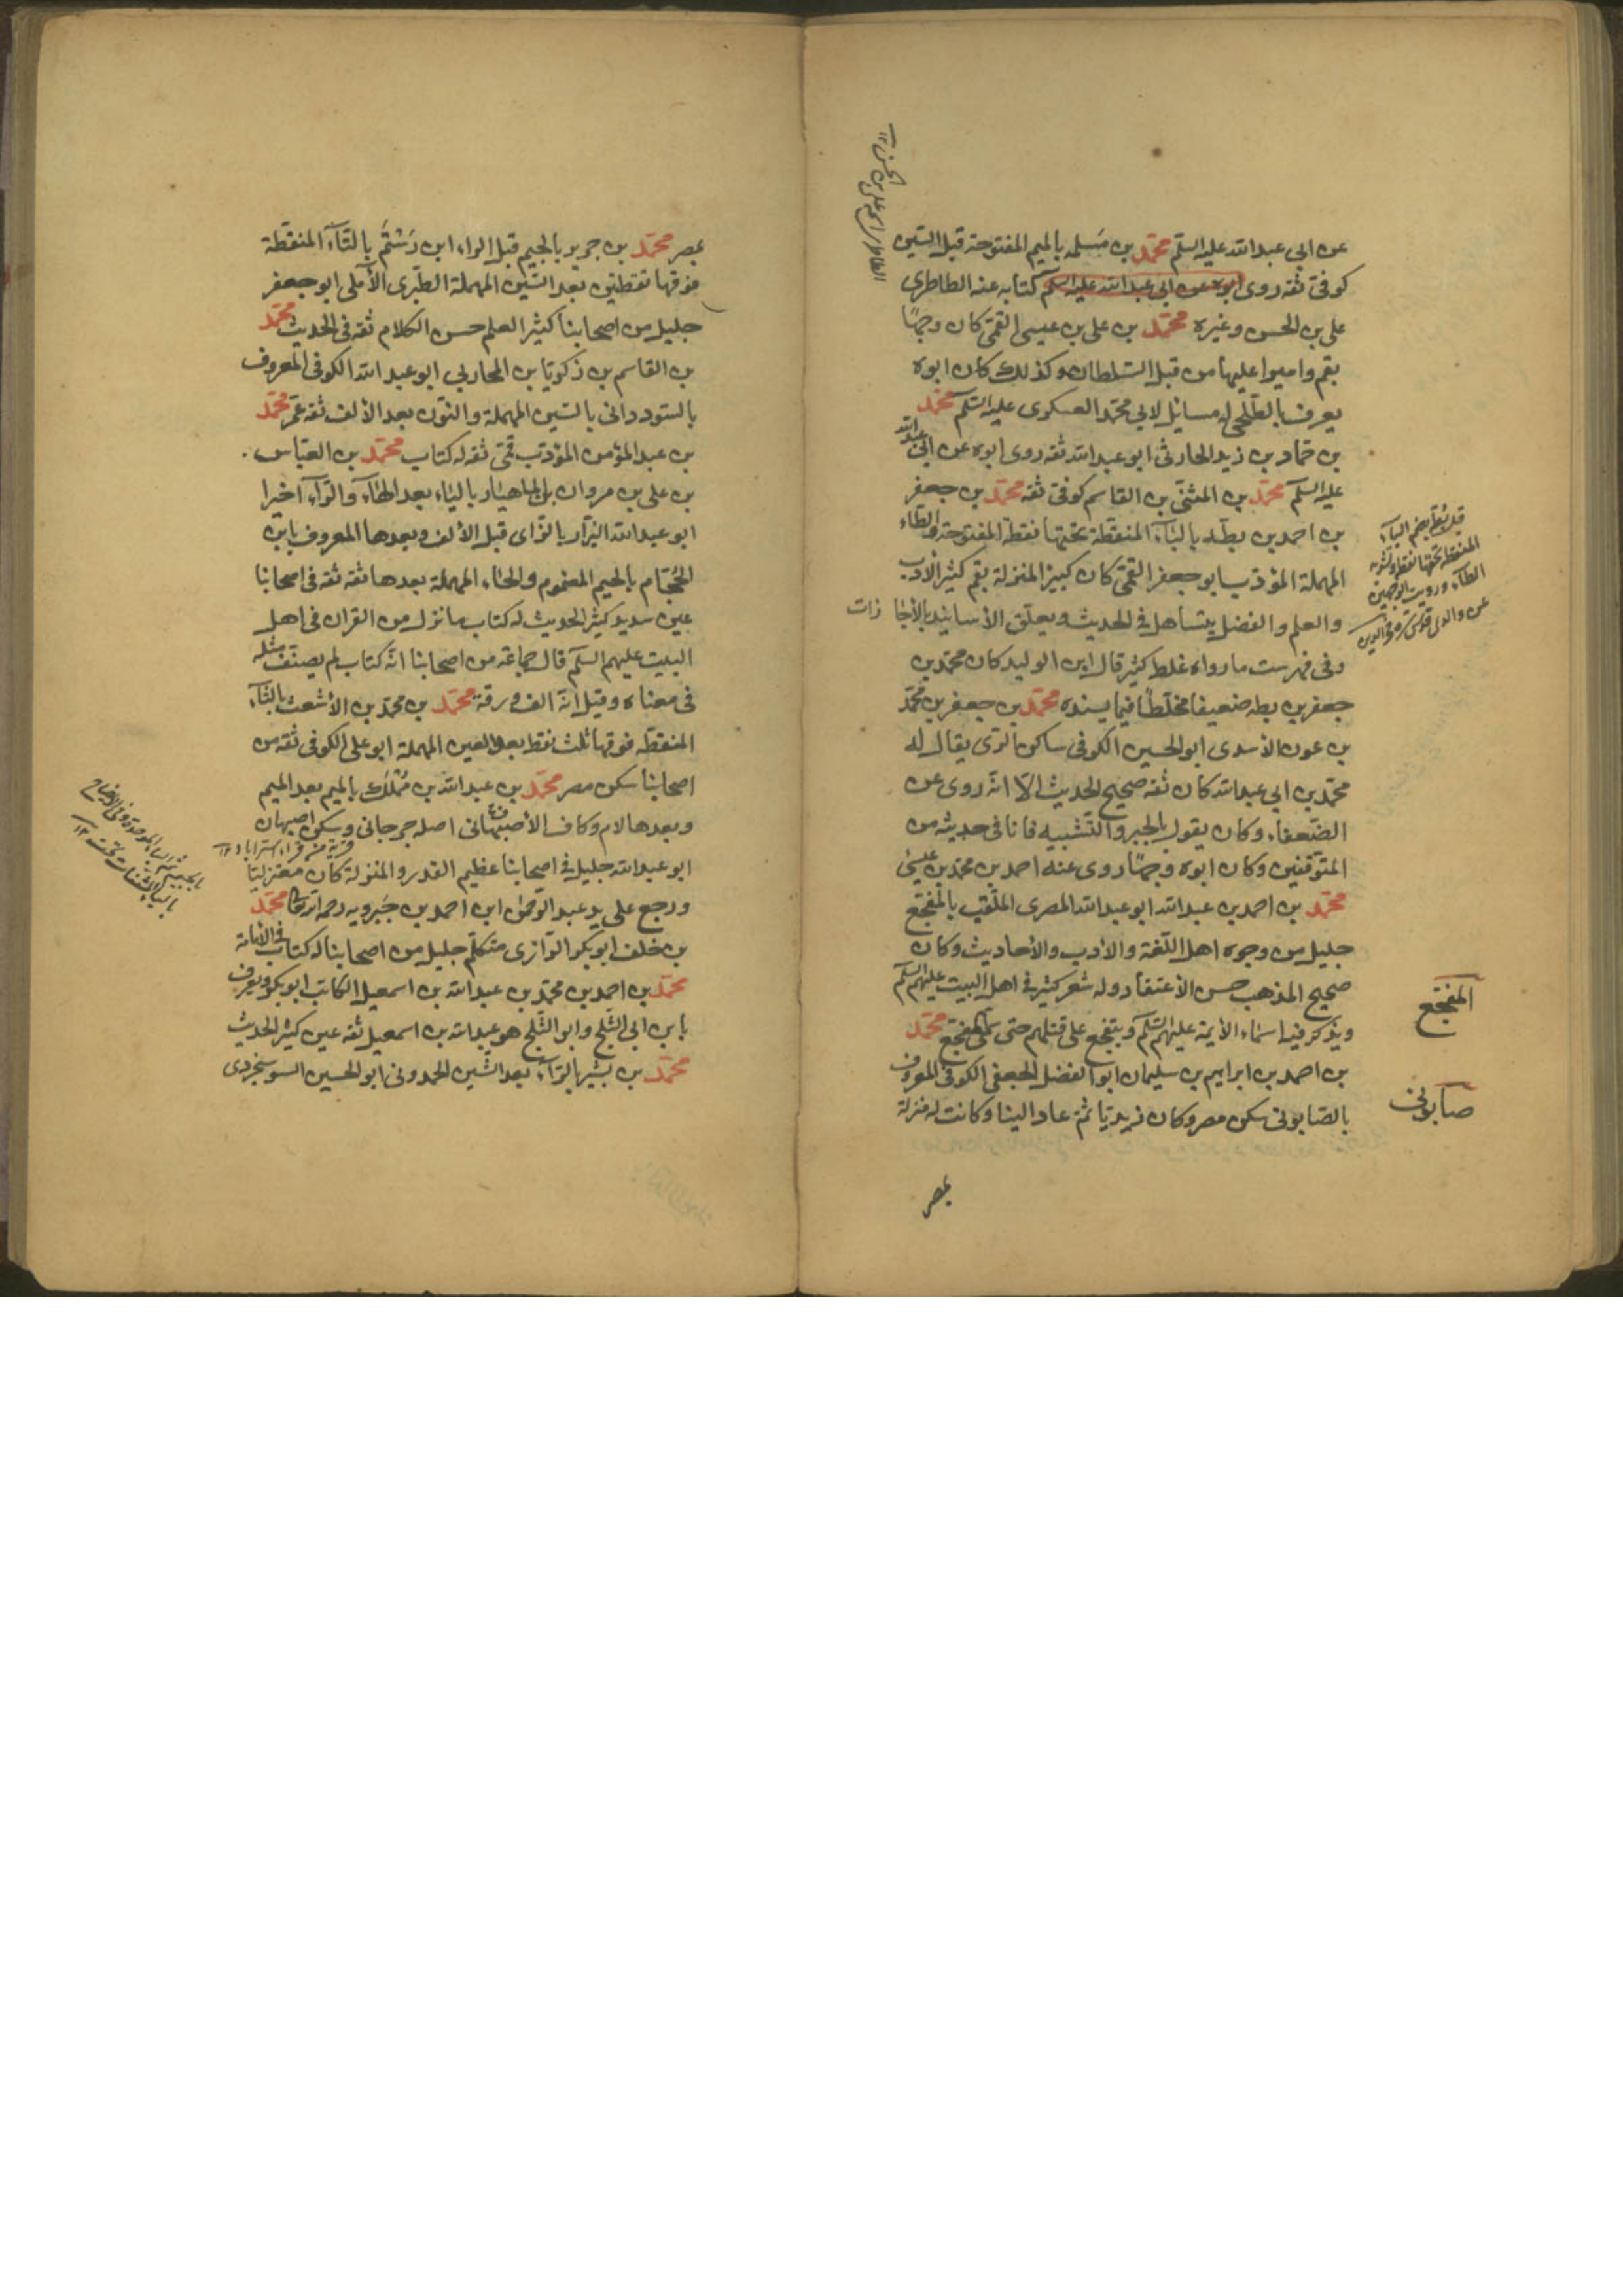 عن ابي عبد الله عليه السلم محمد بن مسلمه بالميم المفتوحة قبل السين
كوفى ثقه روى ابوه عن ابى عبد الله عليه السلم كتابه عنه الطاطرى
على بن الحسن وغيره محمد بن على بن عيسى القمى كان وجهًا
بقم واميرا عليها من قبل السلطان وكذلك كان ابوه
يعرف بالطلحى له مسائل لابى محمد العسكرى عليه السلم محمد
بن حماد بن زيد الحارثى ابو عبد الله ثقه روى ابوه عن ابى عبد الله
عليه السلم محمد بن المثنى بن القاسم كوفى ثقه محمد بن جعفر
بن احمد بن بطه بالباء المنقطة تحتها نقطة المفتوحة والطاء
المهملة المؤدب ابو جعفر القمى كان كبير المنزلة بقم كثير الادب
والعلم والفضل يتساهل فى الحديث ويعلق الأسانيد بالأجا زات
وفى فهرست ما رواه غلط كثير قال ابن الوليد كان محمد بن
جعفر بن بطه ضعيفا مخلطًا فيما يسنده محمد بن جعفر بن محمد
بن عون الاسدى ابو الحسين الكوفى ساكن الرى يقال له
محمد بن ابي عبد الله كان ثقه صحيح الحديث الا انه روى عن
الضعفاء وكان يقول بالجبر والتشبيه فانا فى حديثه من
المتوقفين وكان ابوه وجهًا روى عنه احمد بن محمد بن عيسى
محمد بن احمد بن عبد الله ابو عبد الله المصرى الملقب بالمفجع
جليل من وجوه اهل اللغة والادب والأحاديث وكان
صحيح المذهب حسن الأعتقاد وله شعر كثير فى اهل البيت عليهم السلم
ويذكر فيه اسماء الأيمة عليهم السلم ويتفجع على قتلهم حتى سمى المفجع محمد
بن احمد بن ابراهيم بن سليمان ابو الفضل الجعفى الكوفى المعروف
بالصابونى سكن مصر وكان زيديا ثم عاد الينا وكانت له منزلة
بمصر
المفجع
صابونى
بمصر محمد بن جرير بالجيم قبل الراء ابن رستم بالتاء المنقطة
فوقها نقطتين بعد السين المهملة الطبرى الآملى ابو جعفر
جليل من اصحابنا كثير العلم حسن الكلام ثقه فى الحديث محمد
بن القاسم بن زكريا بن المحاربي ابو عبد الله الكوفى المعروف
بالسودانى بالسين المهملة والنون بعد الألف ثقه عمر محمد
بن عبد المؤمن المؤدب قمى ثقه له كتاب محمد بن العباس
بن على بن مروان بن الماهيار بالياء بعد الهاء والراء اخيرا
ابو عبد الله البزاز بالزاى قبل الألف وبعدها المعروف بابن
الجحام بالجيم المضموم والحاء المهملة بعدها ثقه ثقه فى اصحابنا
عين سديد كثير الحديث له كتاب ما نزل من القران فى اهل
البيت عليهم السلم قال جماعة من اصحابنا انه كتاب لم يصنف مثله
فى معناه وقيل انه الف ورقة محمد بن محمد بن الأشعث بالثاء
المنقطة فوقها ثلث نقط بعد العين المهملة ابو على الكوفى ثقه من
اصحابنا سكن مصر محمد بن عبد الله بن مملك بالميم بعد الميم
وبعدها لام وكاف الأصبهانى اصله جرجانى وسكن اصبهان
ابو عبد الله جليل فى اصحابنا عظيم القدر والمنزلة كان معتزليا
ورجع على يد عبد الرحمن ابن احمد بن جبرويه رحمه الله تعالى محمد
بن خلف ابو بكر الرازى متكلم جليل من اصحابنا له كتاب فى الأمامة
محمد بن احمد بن محمد بن عبد الله بن اسمعيل الكاتب ابو بكر ويعرف
بابن ابى الثلج وابو الثلج هو عبد الله بن اسمعيل ثقه عين كثير الحديث
محمد بن بشير بالراء بعد الشين الحمدونى ابو الحسين السوسنجردى